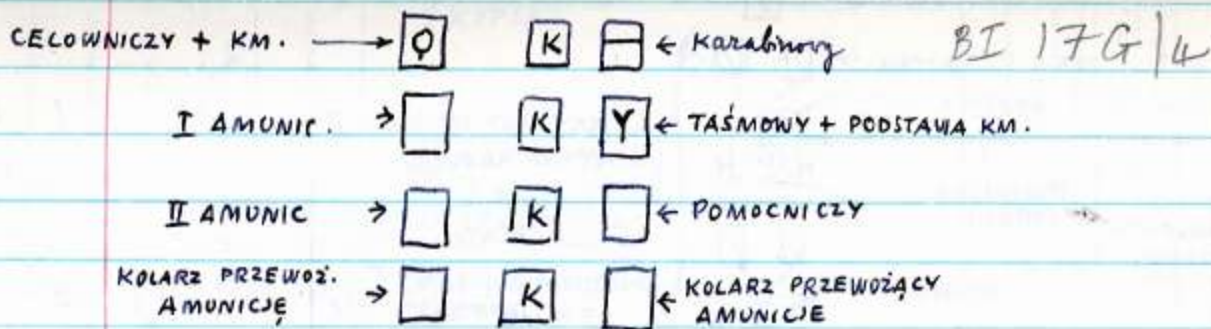 CELOWNICZY + KM. → Q K ← Karabinowy BI 17G/4
I AMUNIC. → K Y ← TAŚMOWY + PODSTAWA KM.
II AMUNIC → K ← POMOCNICZY
KOLARZ PRZEWOŹ. AMUNICJĘ → K ← KOLARZ PRZEWOŻĄCY AMUNICJE